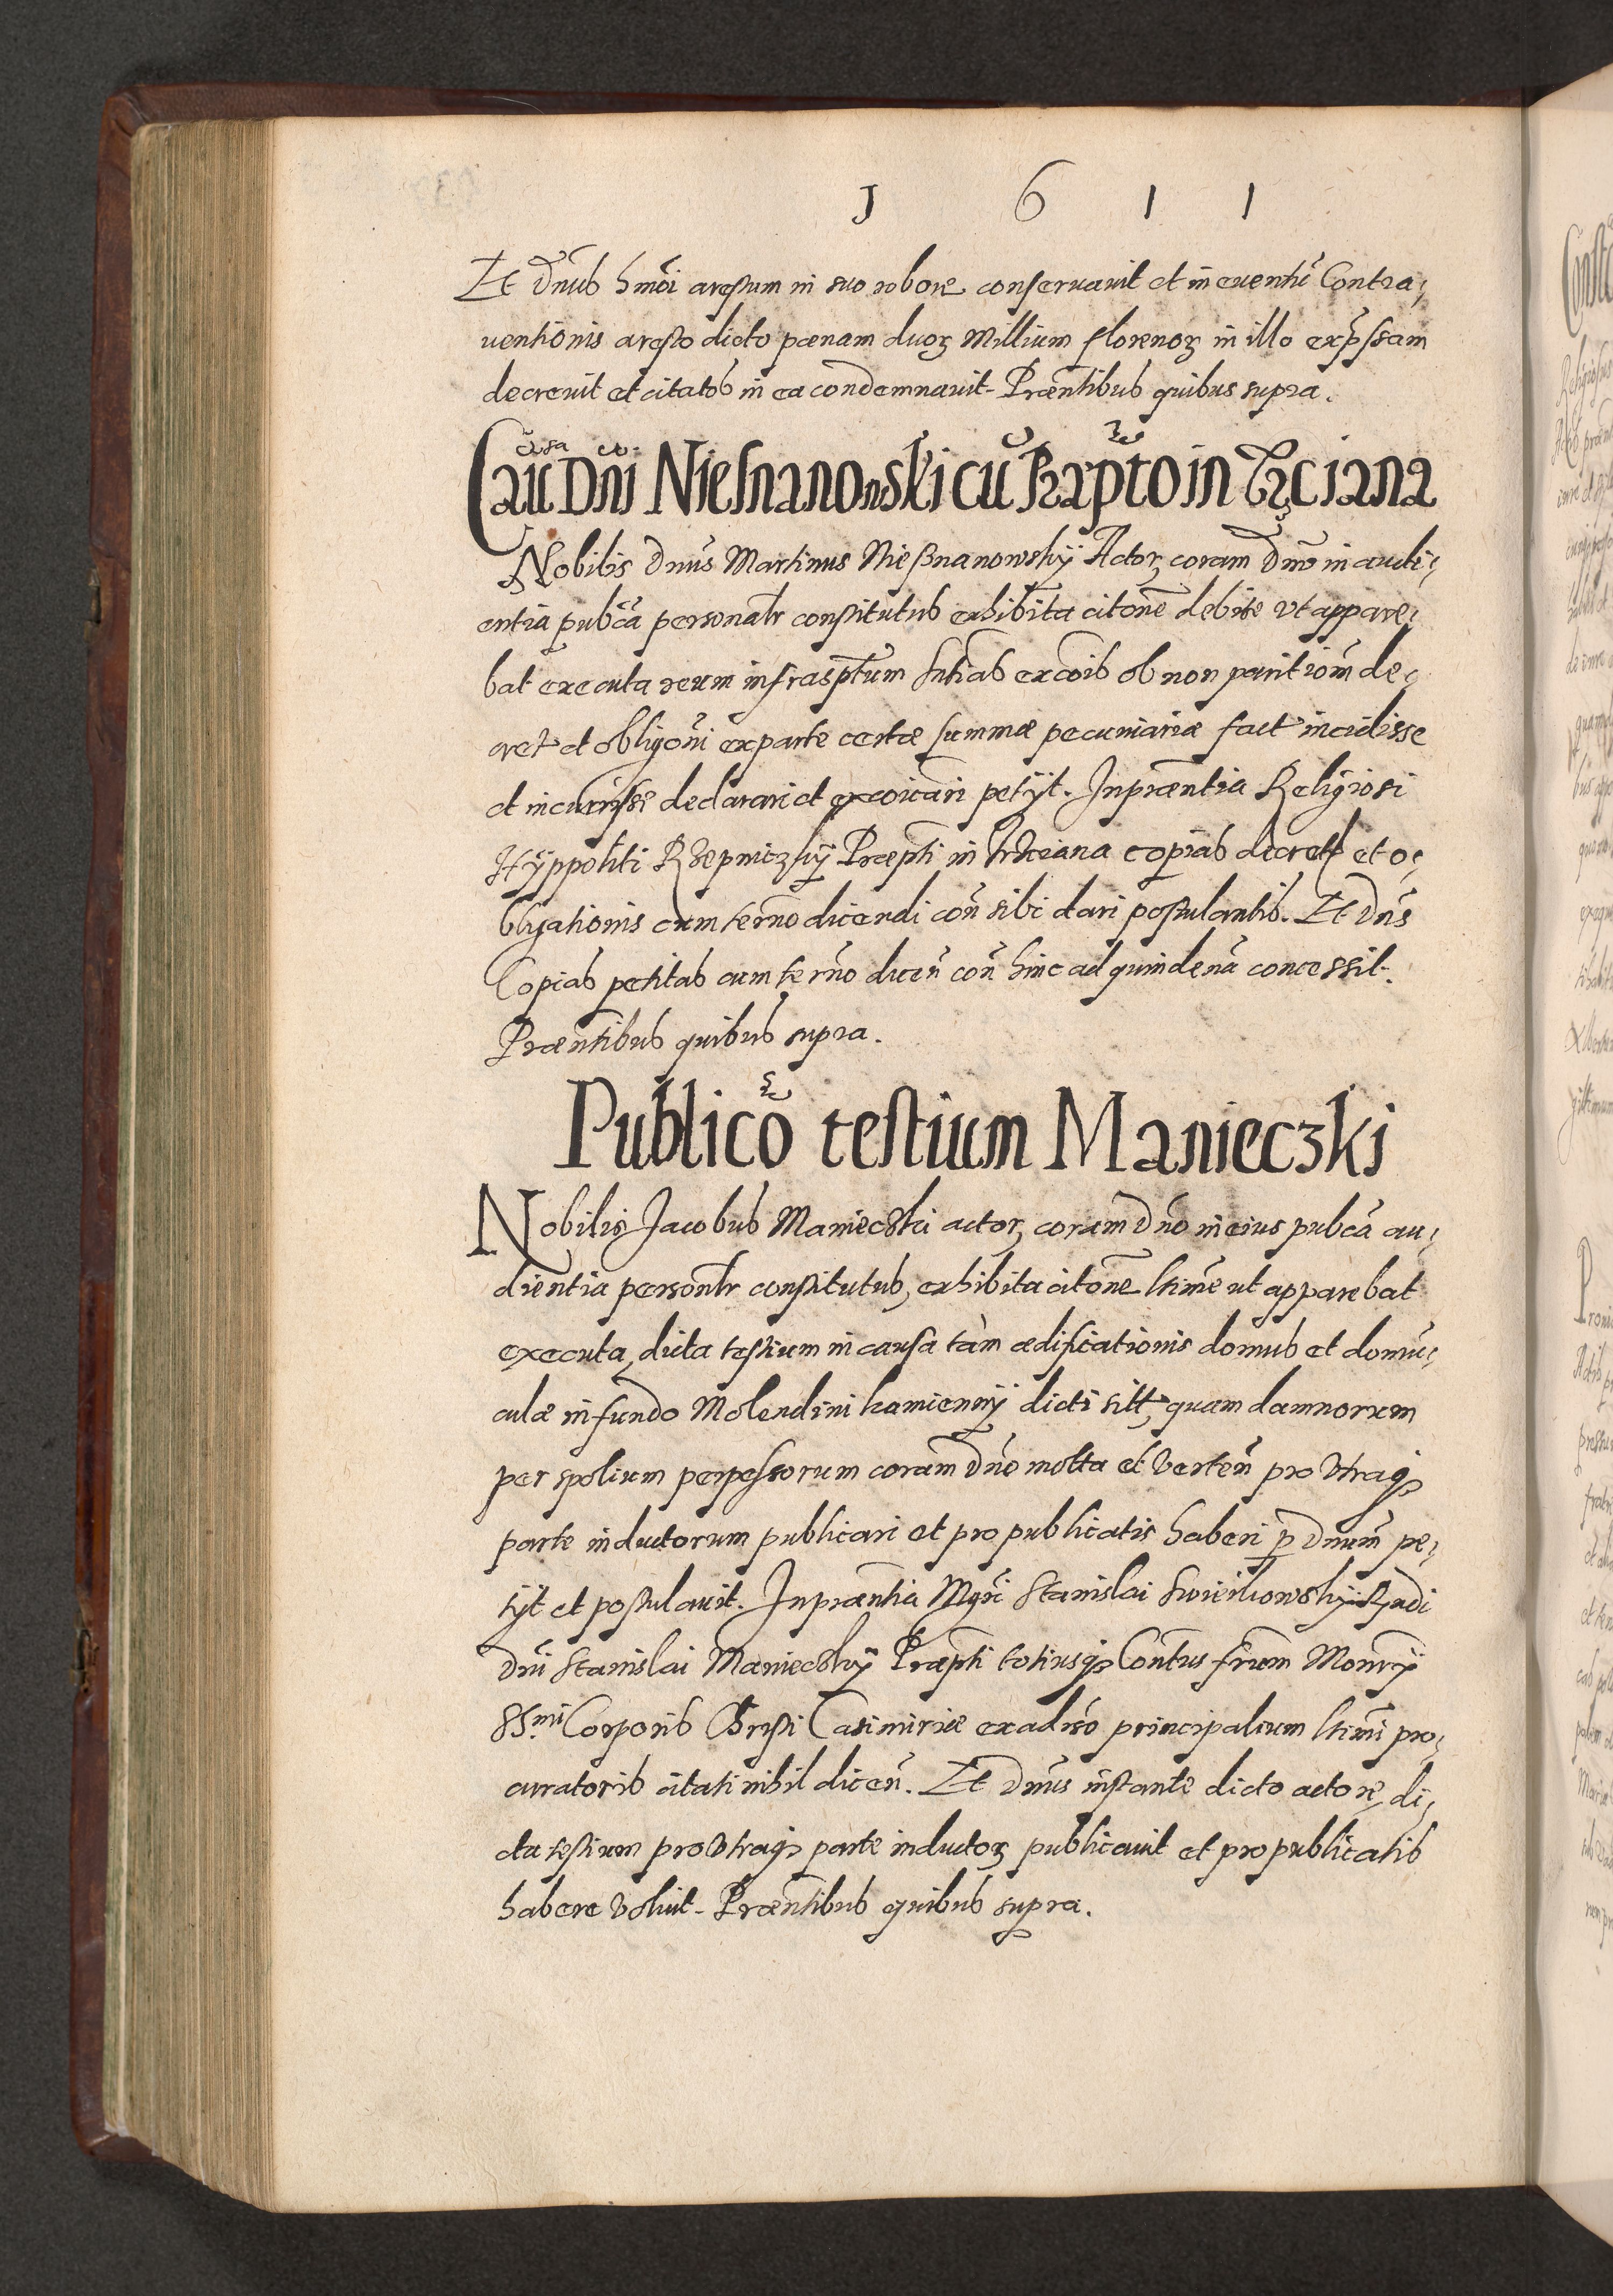 J 6 1 1
Et Dnūs hmōi arestum in suo robore conservavit et in eventū Contra,
ventionis aresto dicto pœnam duoꝝ Millium florenoꝝ in illo exp̄ssam
decrevit et citatos in ea condemnavit. Præntibus quibus supra.
Cāūsa Dni Niesnanonski cū Præpto in
Nobilis Dnūs Martinus Nießnanowskÿ Actor, coram Dno in audi,
entia pubcā personalr constitutus exhibita citone debite ut appare,
bat executa reum infrasptum sntias excōis ob non paritiom de,
cret et obligoni ex parte certæ summæ pecuniariæ fact incidisse
et incurrisse declarari et excoicari petÿt. Inpræntia Religiosi
Hÿppoliti Rzepniczkÿ Præpti in copias decret et o,
bligationis cum termo dicendi con sibi dari postulantis. Et Dns
Copias petitas cum termo dicen con hinc ad quindenā concessit.
Præntibus quibus supra.
Publico testium Manieczki
Nobilis Jacobus Manieczki actor, coram Dno in eius pubcā au,
dientia personlr constitutus, exhibita citone ltime ut apparebat
executa, dicta testium in causa tàm ædificationis domus et domū,
culæ in fundo Molendini kamiennÿ dicti sitt, quam damnorum
per spolium perpessorum coram Dno motta et verten pro utraqꝫ
parte inductorum publicari et pro publicatis haberi p̱ Dnum pe,
tÿt et postulavit. Inpræntia Mgri Stanislai
Dni Stanislai Manieczkÿ Præpti totiusqꝫ Contus frum Monrÿ
SS.mi Corporis Christi Casimiriæ ex adiso principalium ltimi pro,
curatoris citati nihil dicen. Et Dnus instante dicto actore, di,
cta testium pro utraqꝫ parte inductoꝝ publicavit et pro publicatis
habere voluit. Præntibus quibus supra.